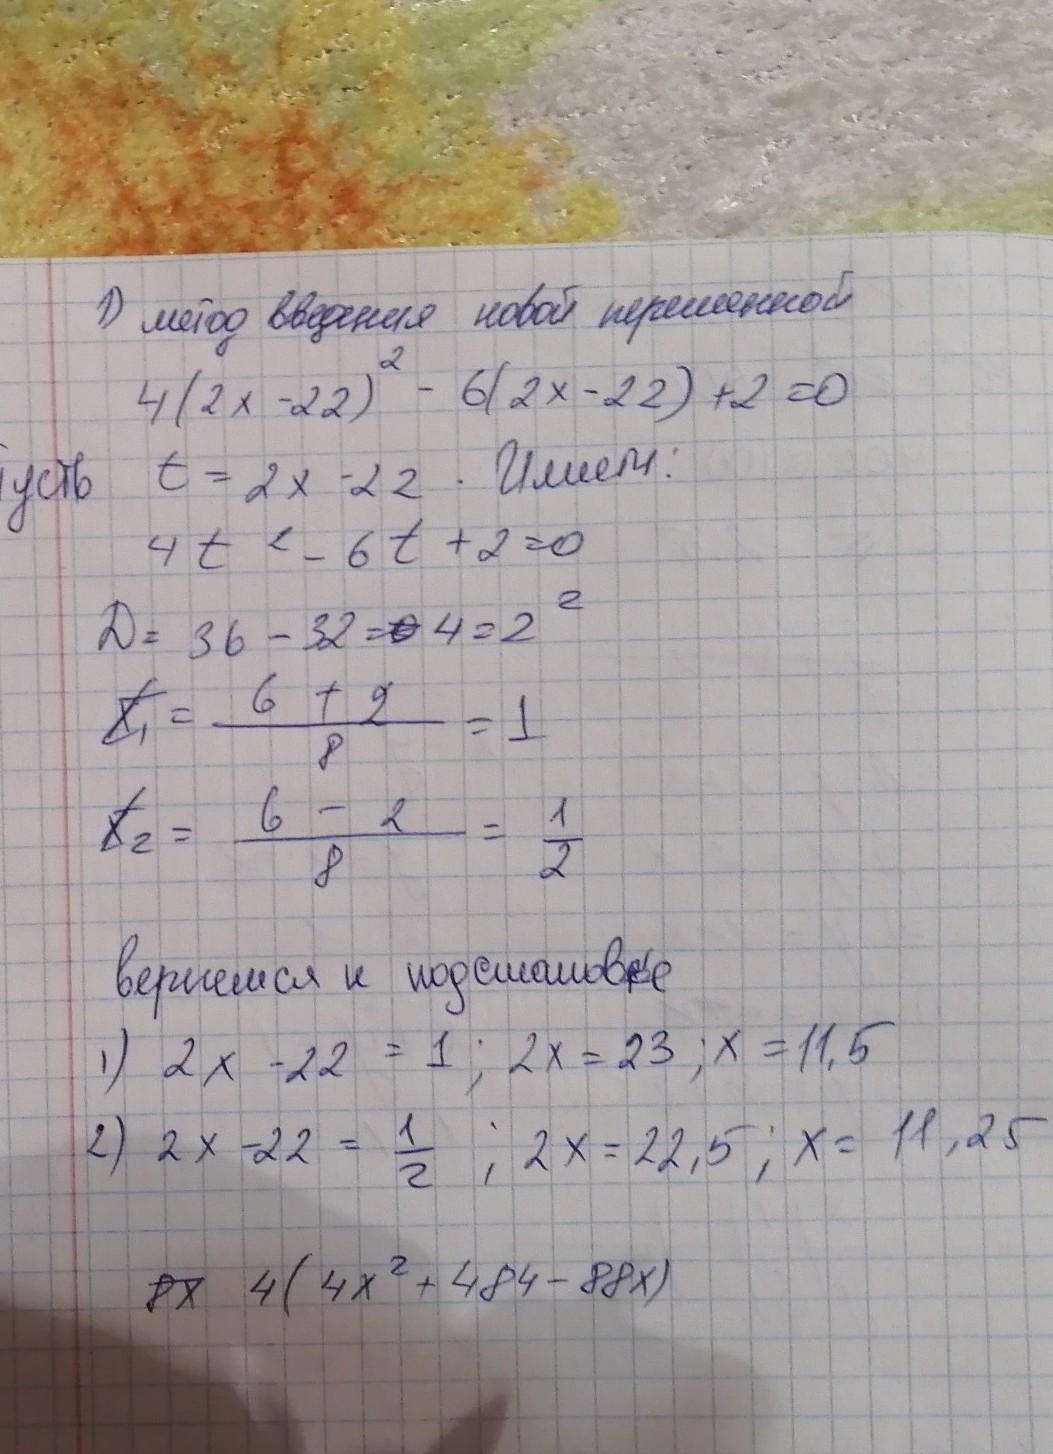 1) метод введения новой переменной
4(2x -22)² - 6(2x-22) +2=0
Пусть t = 2x -22 . Имеем:
4t² - 6t +2=0
D = 36 - 32 = 4 = 2²
t₁ = (6 + 2)/8 = 1
t₂ = (6 - 2)/8 = 1/2
вернемся к подстановке
1) 2x -22 = 1 ; 2x = 23 ; x = 11,5
2) 2x -22 = 1/2 ; 2x = 22,5 ; x = 11,25
8x 4(4x² + 484 - 88x)